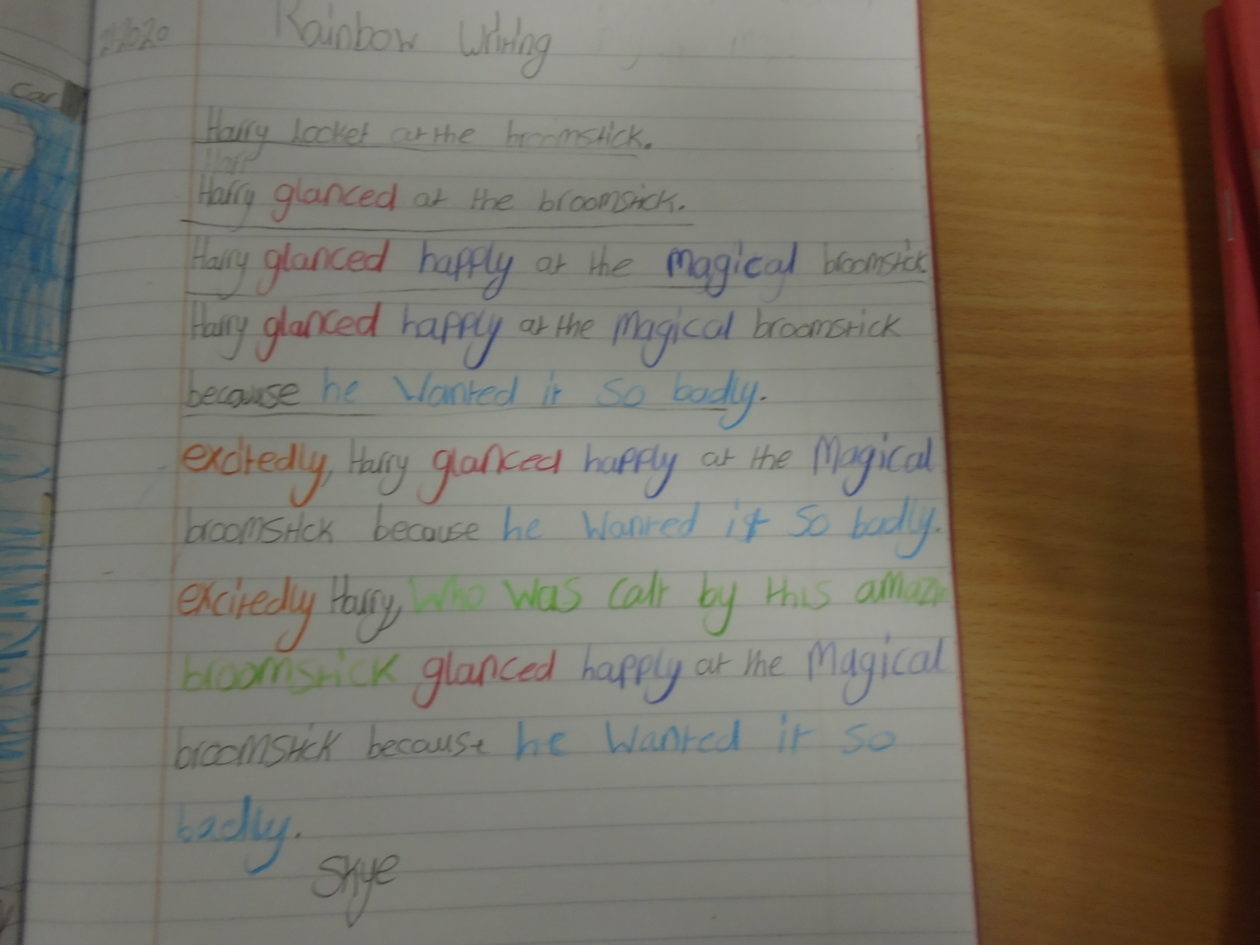 Car
Rainbow Writing
Harry Locket at the broomstick.
Harry glanced at the broomstick.
Harry glanced happly at the magical broomstick
Harry glanced happly at the Magical broomstick
because he Wanted it So badly.
excitedly, Harry glanced happly at the Magical
broomstick because he Wanted it So badly.
excitedly Harry, Who was calt by this amazi
broomstick glanced happly at the Magical
broomstick because he Wanted it So
badly.
Skye